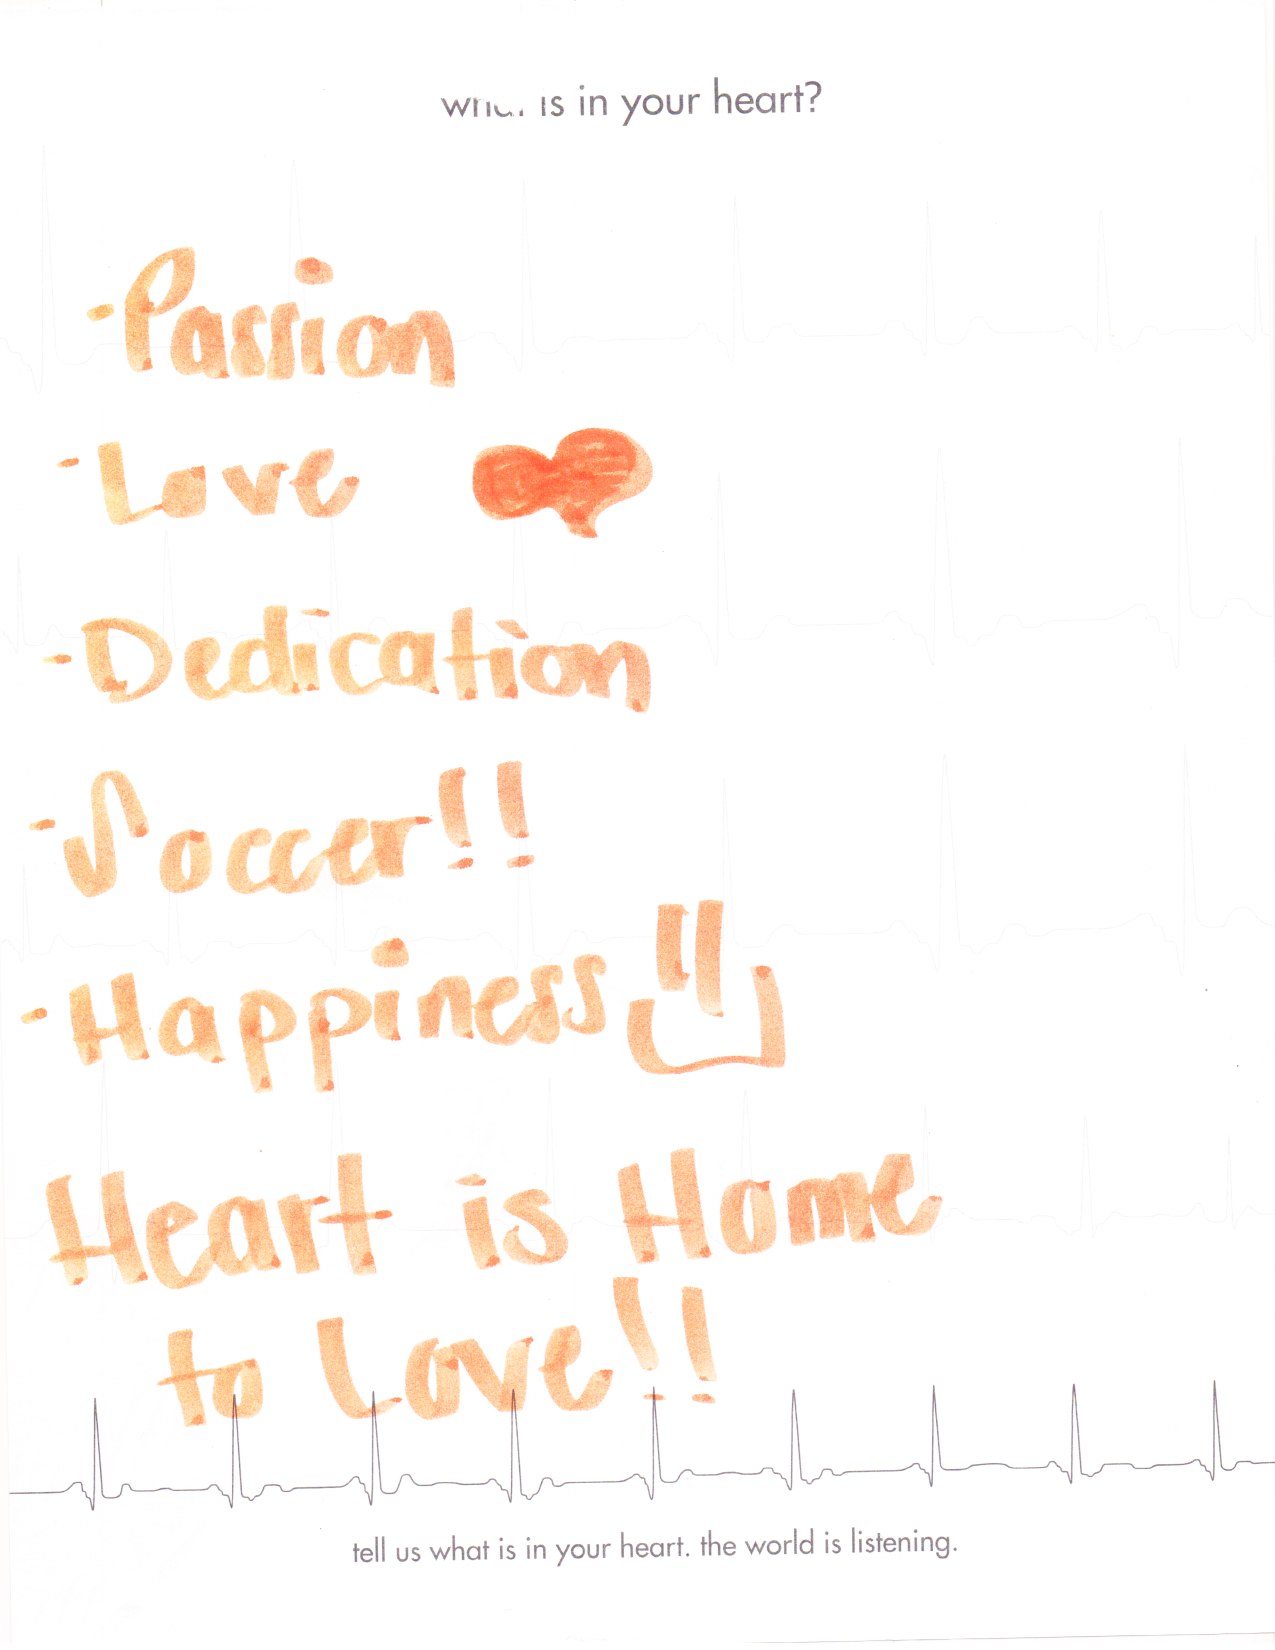 what is in your heart?
-Passion
-Love
-Dedication
-Soccer!!
-Happiness
Heart is Home
to Love!!
tell us what is in your heart. the world is listening.